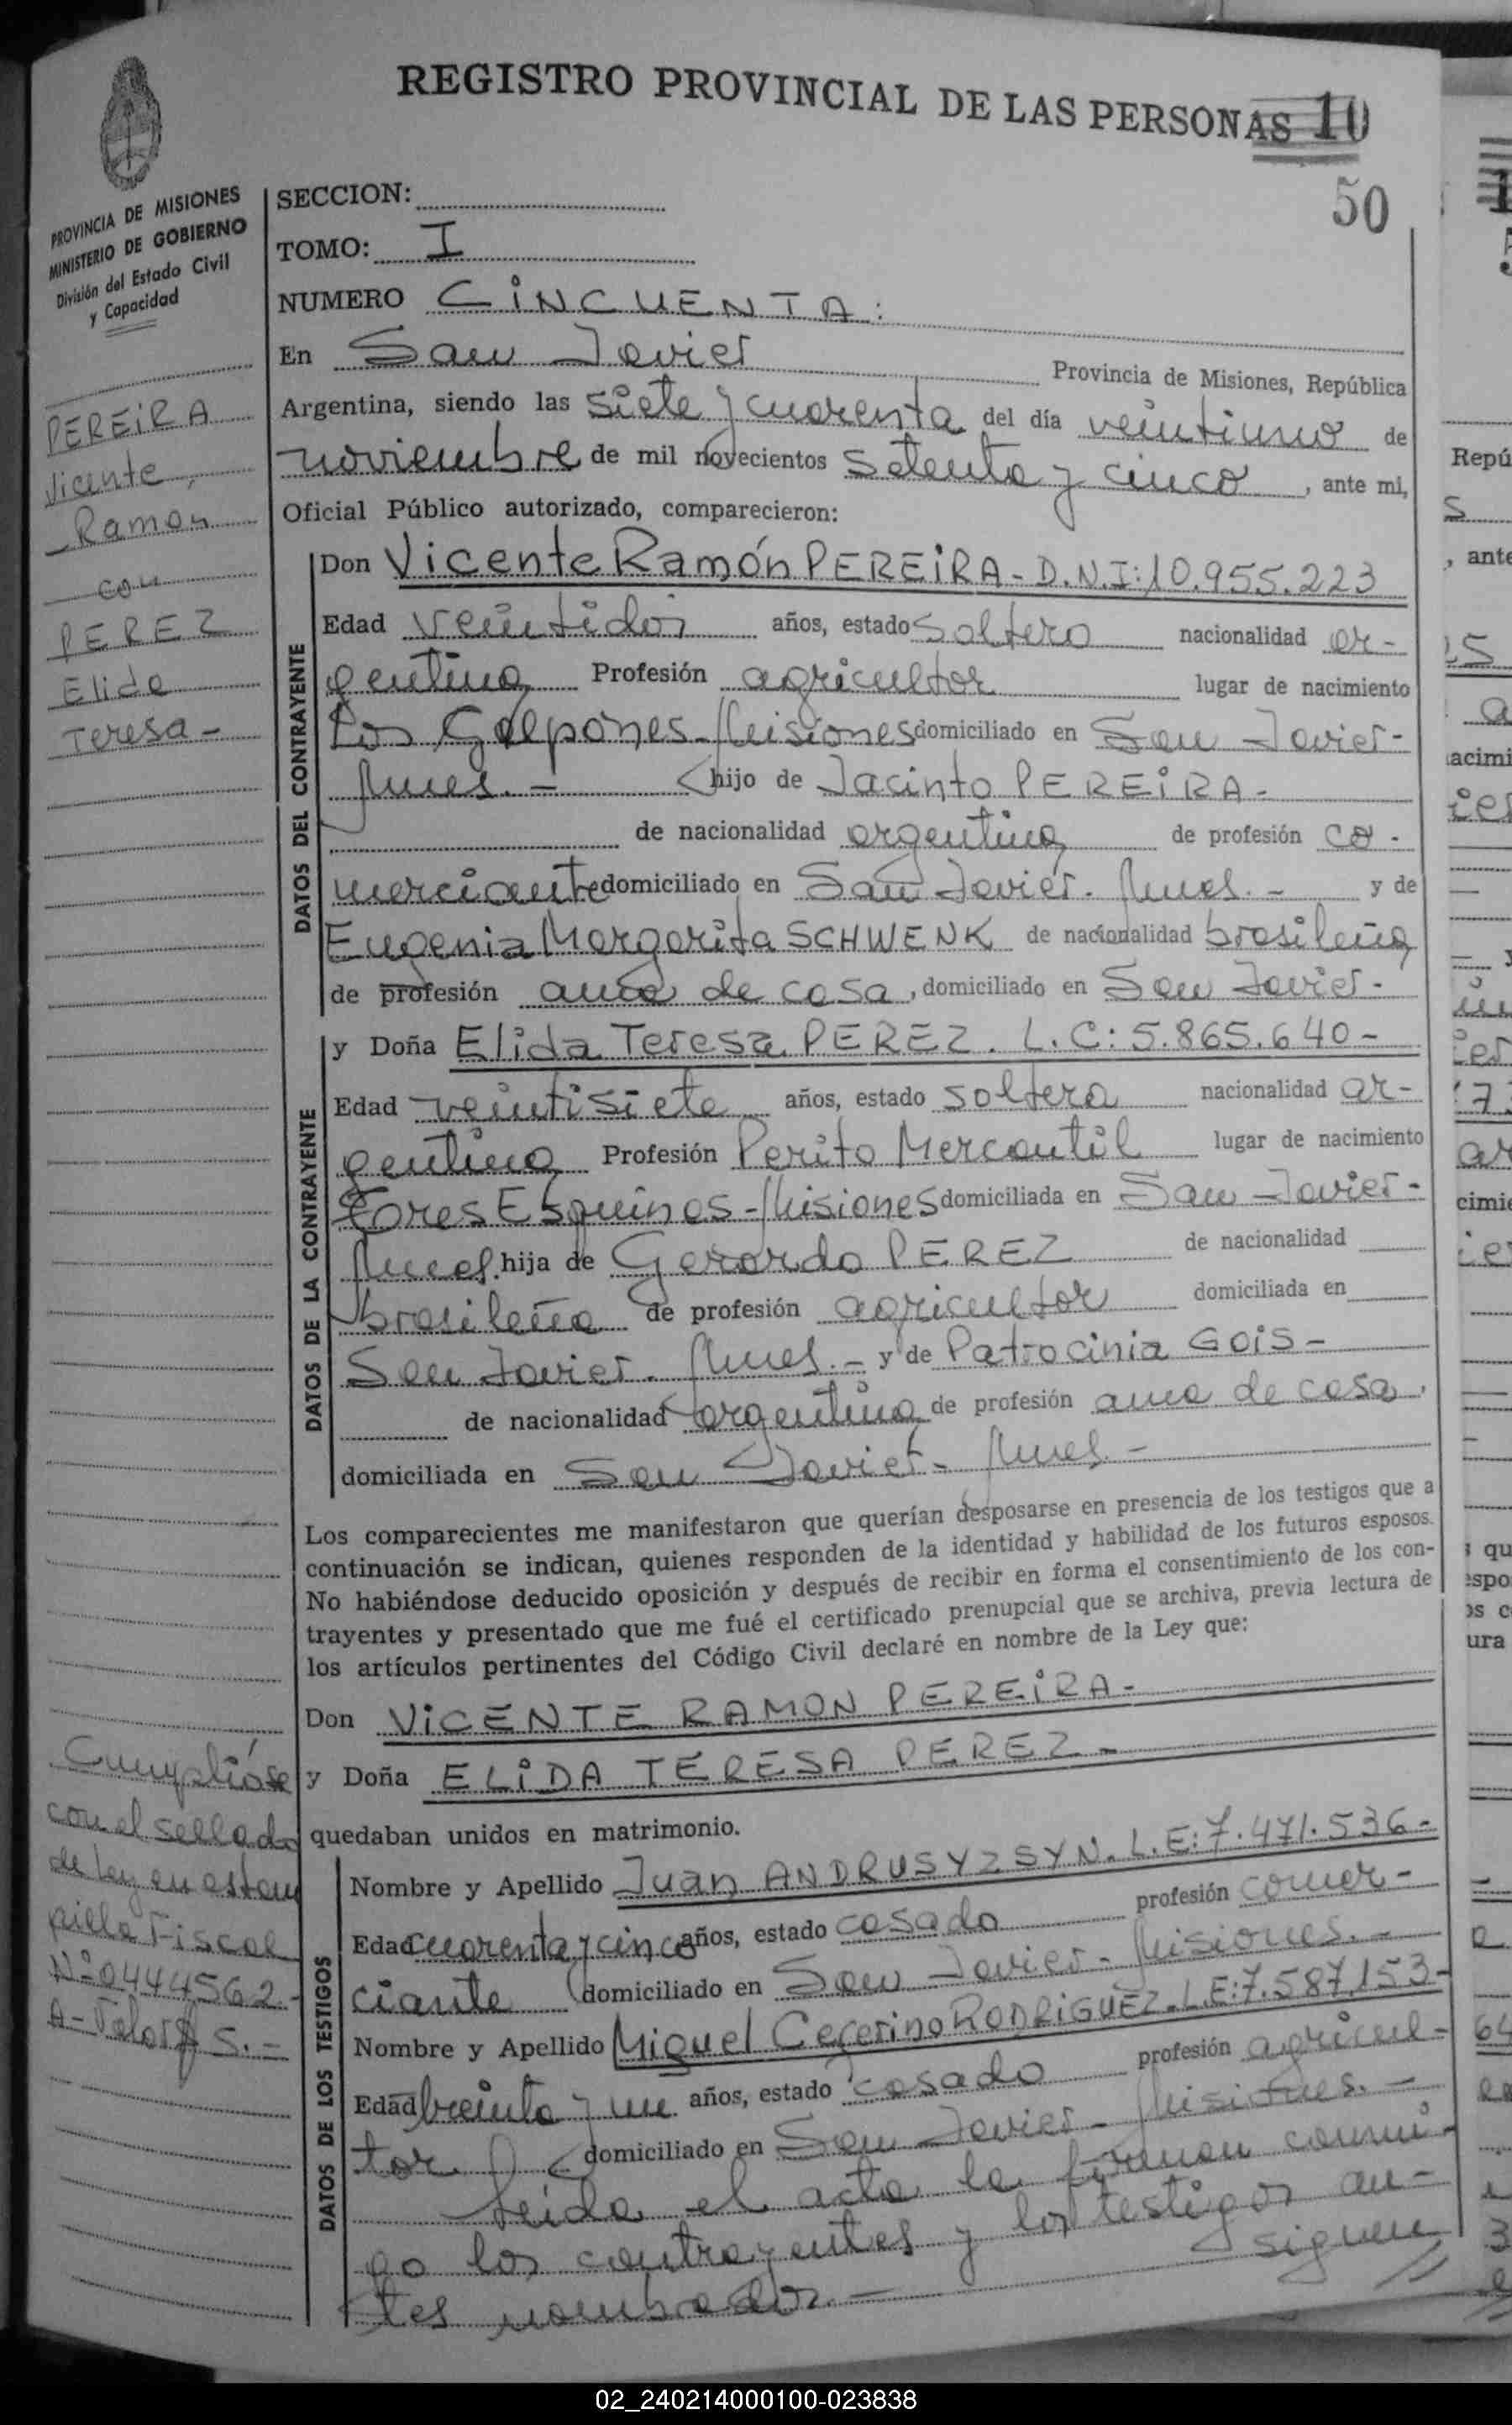 REGISTRO PROVINCIAL DE LAS PERSONAS 10
50
PROVINCIA DE MISIONES
MINISTERIO DE GOBIERNO
División del Estado Civil
y Capacidad
PEREIRA
Vicente,
Ramon
con
PEREZ
Elida
Teresa -
Cumplióse
con el sellado
de ley en estam
pilla Fiscal
Nº 0444562.-
A-Valor $ 5.-
SECCION:
TOMO: I
NUMERO CINCUENTA:
En San Javier Provincia de Misiones, República
Argentina, siendo las siete y cuarenta del día veintiuno de
noviembre de mil novecientos setenta y cinco, ante mi,
Oficial Público autorizado, comparecieron:
DATOS DEL CONTRAYENTE
Don Vicente Ramón PEREIRA - D.N.I: 10.955.223
Edad veintidos años, estado soltero nacionalidad ar-
gentina Profesión agricultor lugar de nacimiento
Los Galpones - Misiones domiciliado en San Javier-
Mnes. - hijo de Jacinto PEREIRA -
de nacionalidad argentina de profesión co-
merciante domiciliado en San Javier. Mnes. - y de
Eugenia Margarita SCHWENK de nacionalidad brasileña
de profesión ama de casa, domiciliado en San Javier.
DATOS DE LA CONTRAYENTE
y Doña Elida Teresa PEREZ. L.C: 5.865.640-
Edad veintisiete años, estado soltera nacionalidad ar-
gentina Profesión Perito Mercantil lugar de nacimiento
Tores Esquinas - Misiones domiciliada en San Javier-
Mnes. hija de Gerardo PEREZ de nacionalidad
brasileña de profesión agricultor domiciliada en
San Javier. Mnes. - y de Patrocinia GOIS -
de nacionalidad argentina de profesión ama de casa,
domiciliada en San Javier- Mnes. -
Los comparecientes me manifestaron que querían desposarse en presencia de los testigos que a
continuación se indican, quienes responden de la identidad y habilidad de los futuros esposos.
No habiéndose deducido oposición y después de recibir en forma el consentimiento de los con-
trayentes y presentado que me fué el certificado prenupcial que se archiva, previa lectura de
los artículos pertinentes del Código Civil declaré en nombre de la Ley que:
Don VICENTE RAMON PEREIRA-
y Doña ELIDA TERESA PEREZ-
quedaban unidos en matrimonio.
DATOS DE LOS TESTIGOS
Nombre y Apellido Juan ANDRUSYZSYN. L.E: 7.471.536-
Edad cuarenta y cinco años, estado casado profesión comer-
ciante domiciliado en San Javier- Misiones. -
Nombre y Apellido Miguel Ceferino RODRIGUEZ. L.E: 7.587.153-
Edad treinta y un años, estado casado profesión agricul-
tor domiciliado en San Javier - Misiones. -
Leída el acta la firman conmi-
go los contrayentes y los testigos an-
tes nombrados. - siguen //
02_240214000100-023838